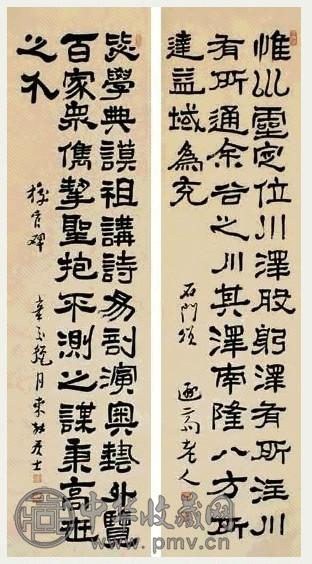 惟巛靈定位川澤股躬澤有所注川
有所通余谷之川其澤南隆八方所
達益域為充
石門頌
老人
學典謨祖講詩易剖演奧藝外覽
百家衆儁挈聖抱不測之謀秉高世
之介
校官碑
月東居士
中华收藏网
www.pmv.cn